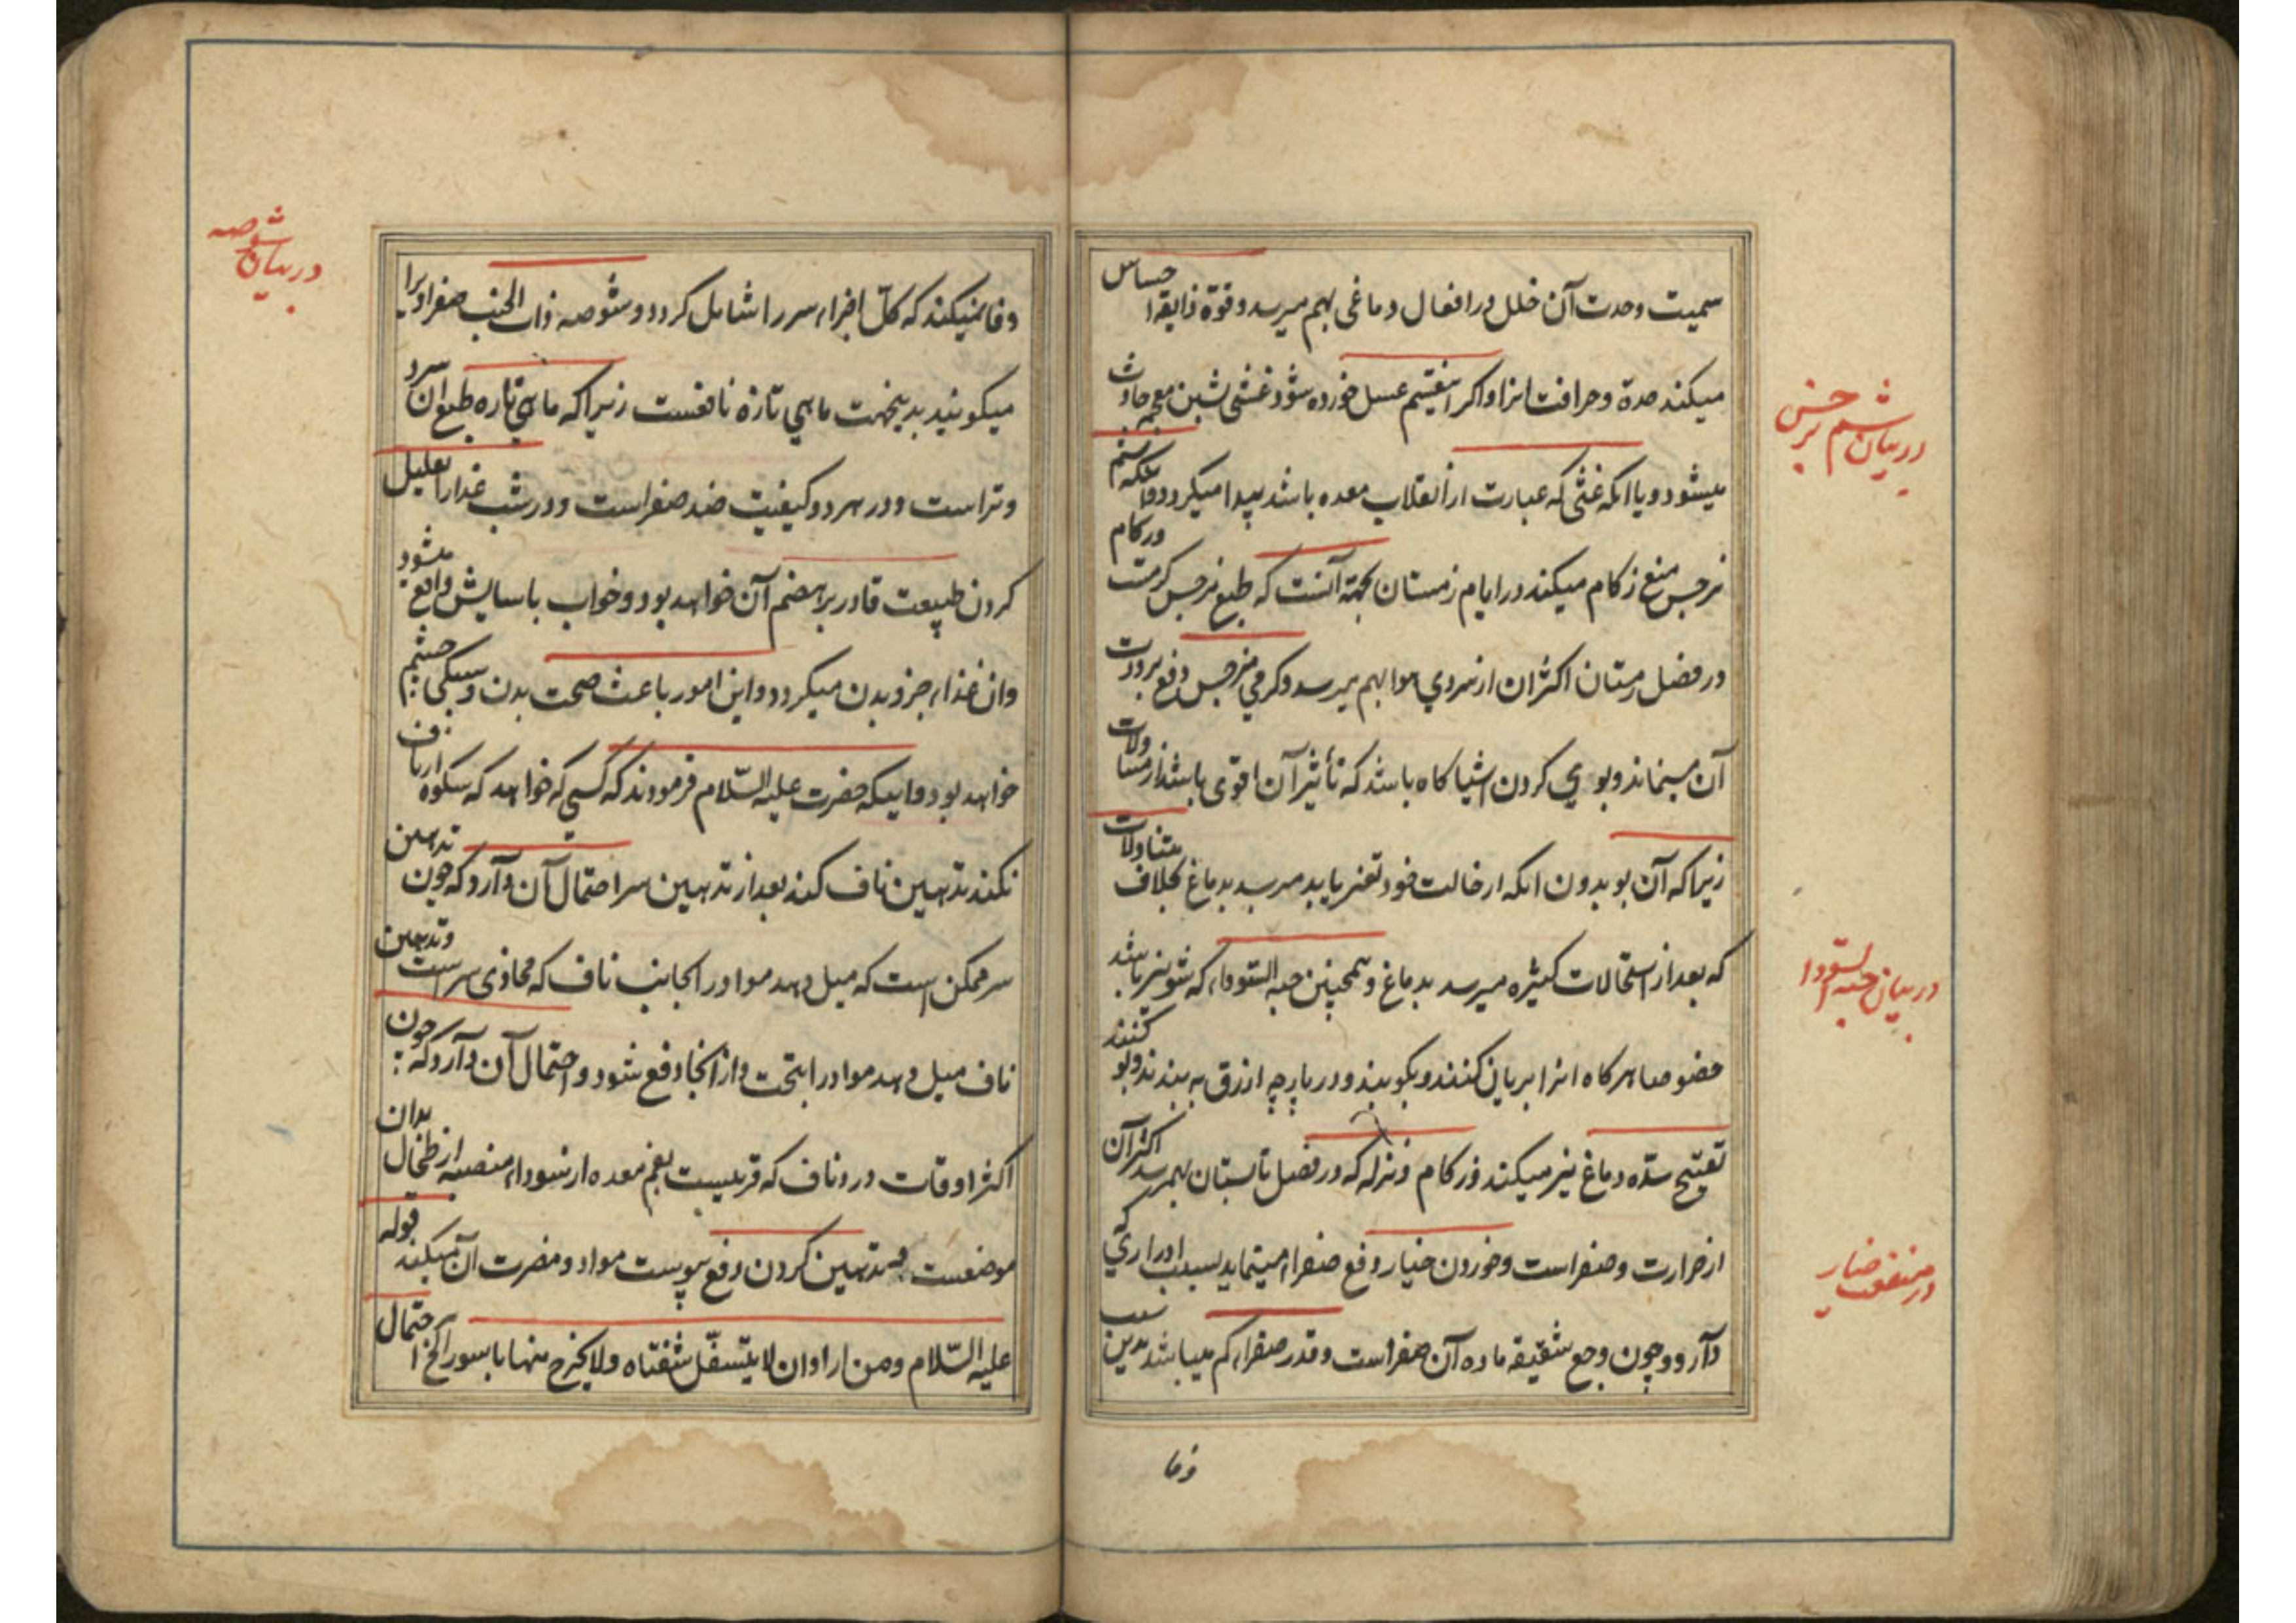 سمیت وحدت آن خلل در افعال دماغی بهم میرسد و قوة ذایقه احساس
میکند حدة و حرافت انرا و اکر اینقسم عسل خورده شود غشی
میشود و یا انکه غثی که عبارت از انقلاب معده باشد پیدا میکردد
نرجس منع زکام میکند در ایام زمستان بجهة آنست که طبع نرجس کرمست
در فصل زمستان اکثر ان از سردي هوا بهم میرسد و کرمي نرجس دفع برودت
آن مینماید و بوي کردن اشیا کاه باشد که تأثیر آن اقوی باشد از متناولات
زیرا که آن بو بدون انکه از حالت خود تغیر یابد میرسد بدماغ بخلاف متناولات
که بعد از استحالات کثیره میرسد بدماغ و همچنین حبه السّوداء که شونیز باشد
خصوصا هرکاه انرا بریان کنند و بکوبند و در پارچه ازرق به بندند و بو کنند
تفتیح سدّه دماغ نیز میکند و زکام و نزله که در فصل تابستان بهمرسد اکثر آن
از حرارت و صفراست و خوردن خیار دفع صفرا مینماید بسبب ادراري که
دآرد و چون وجع شقیقه ماده آن صفراست و قدر صفراء کم میباشد بدین سبب
وفا
در بیان شم نرجس
در بیان حبة السّودا
در منفعت خیار
وفا نمیکند که کلّ اجزاء سر را شامل کردد و شوصه ذات الجنب صفراویرا
میکویند بدینجهت ماهي تازه نافعست زیرا که ماهي تازه طبع آن سرد
و تر است و در هر دو کیفیت ضد صفراست و در شب غذا را تقلیل
کردن طبیعت قادر بر هضم آن خواهد بود و خواب باسایش واقع میشود
وان غذاء جزو بدن میکردد و این امور باعث صحت بدن و سبکی چشم
خواهد بود و اینکه حضرت علیه السّلام فرمودند که کسی که خواهد که
نکند تدهین ناف کند بعد از تدهین سر احتمال آن دآرد که چون تدهین
سر ممکن است که میل دهد مواد را بجانب ناف که محاذی سر است و تدهین
ناف میل دهد مواد را بتحت و از انجا دفع شود و احتمال آن دآرد که چون
اکثر اوقات درد ناف که قریبست بفم معده از سوداء منصبه از طحال بدان
موضعست و تدهین کردن دفع یبوست مواد و مضرت آن میکند قوله
علیه السّلام ومن اراد ان لا یتسفّل شفتاه ولا یخرج منها باسور الخ احتمال
در بیان شوصه